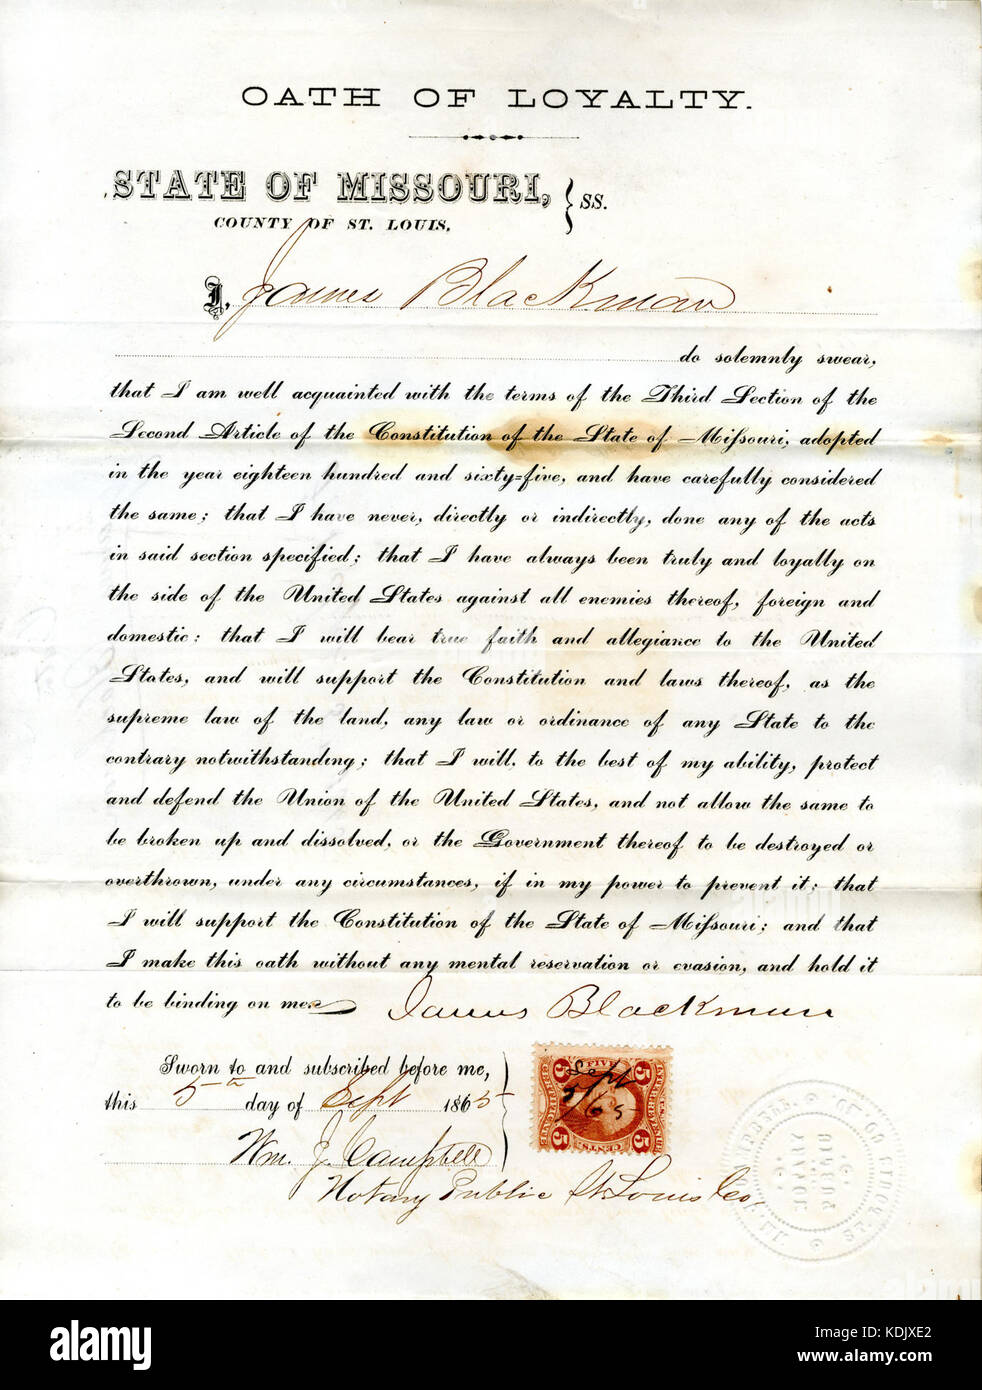 OATH OF LOYALTY.
STATE OF MISSOURI, } SS.
COUNTY OF ST. LOUIS,
I, James Blackman
do solemnly swear,
that I am well acquainted with the terms of the Third Section of the
Second Article of the Constitution of the State of Missouri, adopted
in the year eighteen hundred and sixty=five, and have carefully considered
the same; that I have never, directly or indirectly, done any of the acts
in said section specified; that I have always been truly and loyally on
the side of the United States against all enemies thereof, foreign and
domestic: that I will bear true faith and allegiance to the United
States, and will support the Constitution and laws thereof, as the
supreme law of the land, any law or ordinance of any State to the
contrary notwithstanding; that I will, to the best of my ability, protect
and defend the Union of the United States, and not allow the same to
be broken up and dissolved, or the Government thereof to be destroyed or
overthrown, under any circumstances, if in my power to prevent it; that
I will support the Constitution of the State of Missouri; and that
I make this oath without any mental reservation or evasion, and hold it
to be binding on me. James Blackman
Sworn to and subscribed before me,
this 5th day of Sept 1865
Wm. J. Campbell
Notary Public St. Louis Co.
FIVE
5 5
Sept
5/65
5 5
CENTS
alamy
Image ID: KDJXE2
www.alamy.com